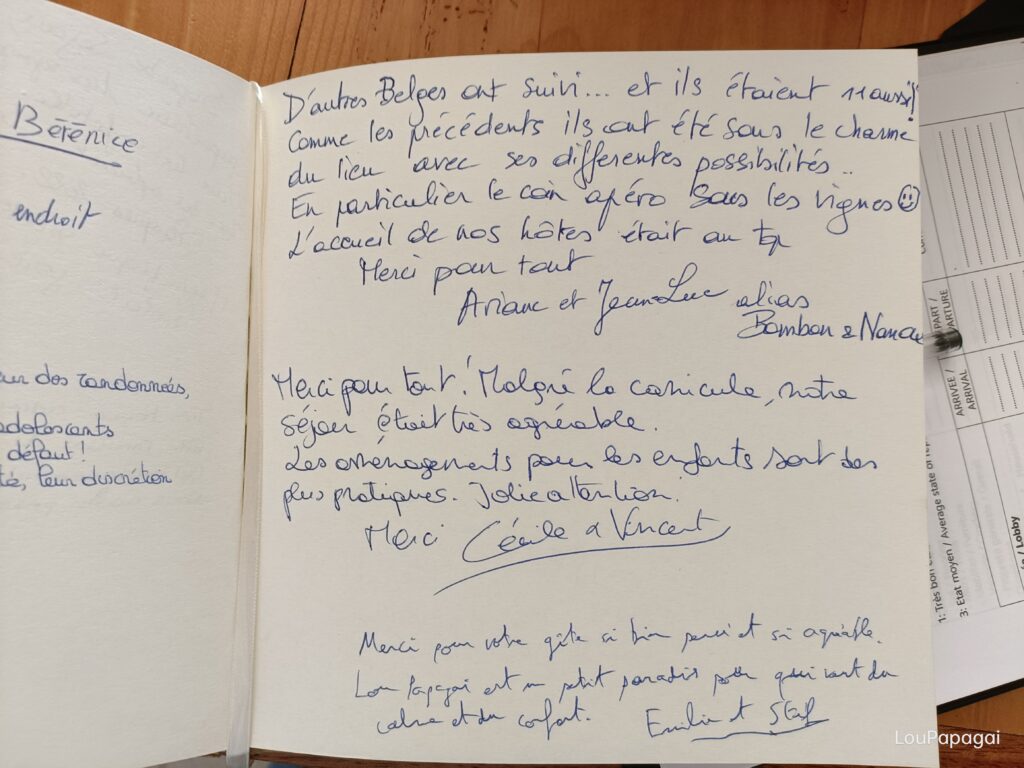 Bérénice
endroit
des randonnées,
défaut!
leur discrétion
D'autres Belges ont suivi... et ils étaient 11 aussi!
Comme les précédents ils ont été sous le charme
du lieu avec ses differentes possibilités..
En particulier le coin apéro sous les vignes
L'accueil de nos hôtes était au top
Merci pour tout
Ariane et Jean-Luc alias
Bombon &
Merci pour tout! Malgré la canicule, notre
séjour était très agréable.
Les aménagements pour les enfants sont des
plus pratiques. Jolie attention.
Merci Cécile & Vincent
Merci pour votre gîte si bien pensé et si agréable.
Lou Papagai est un petit paradis pour qui veut du
calme et du confort. Emilie et Stef
ARRIVEE /
ARRIVAL
1: Très bon
3: Etat moyen / Average state of
/ Lobby
LouPapagai